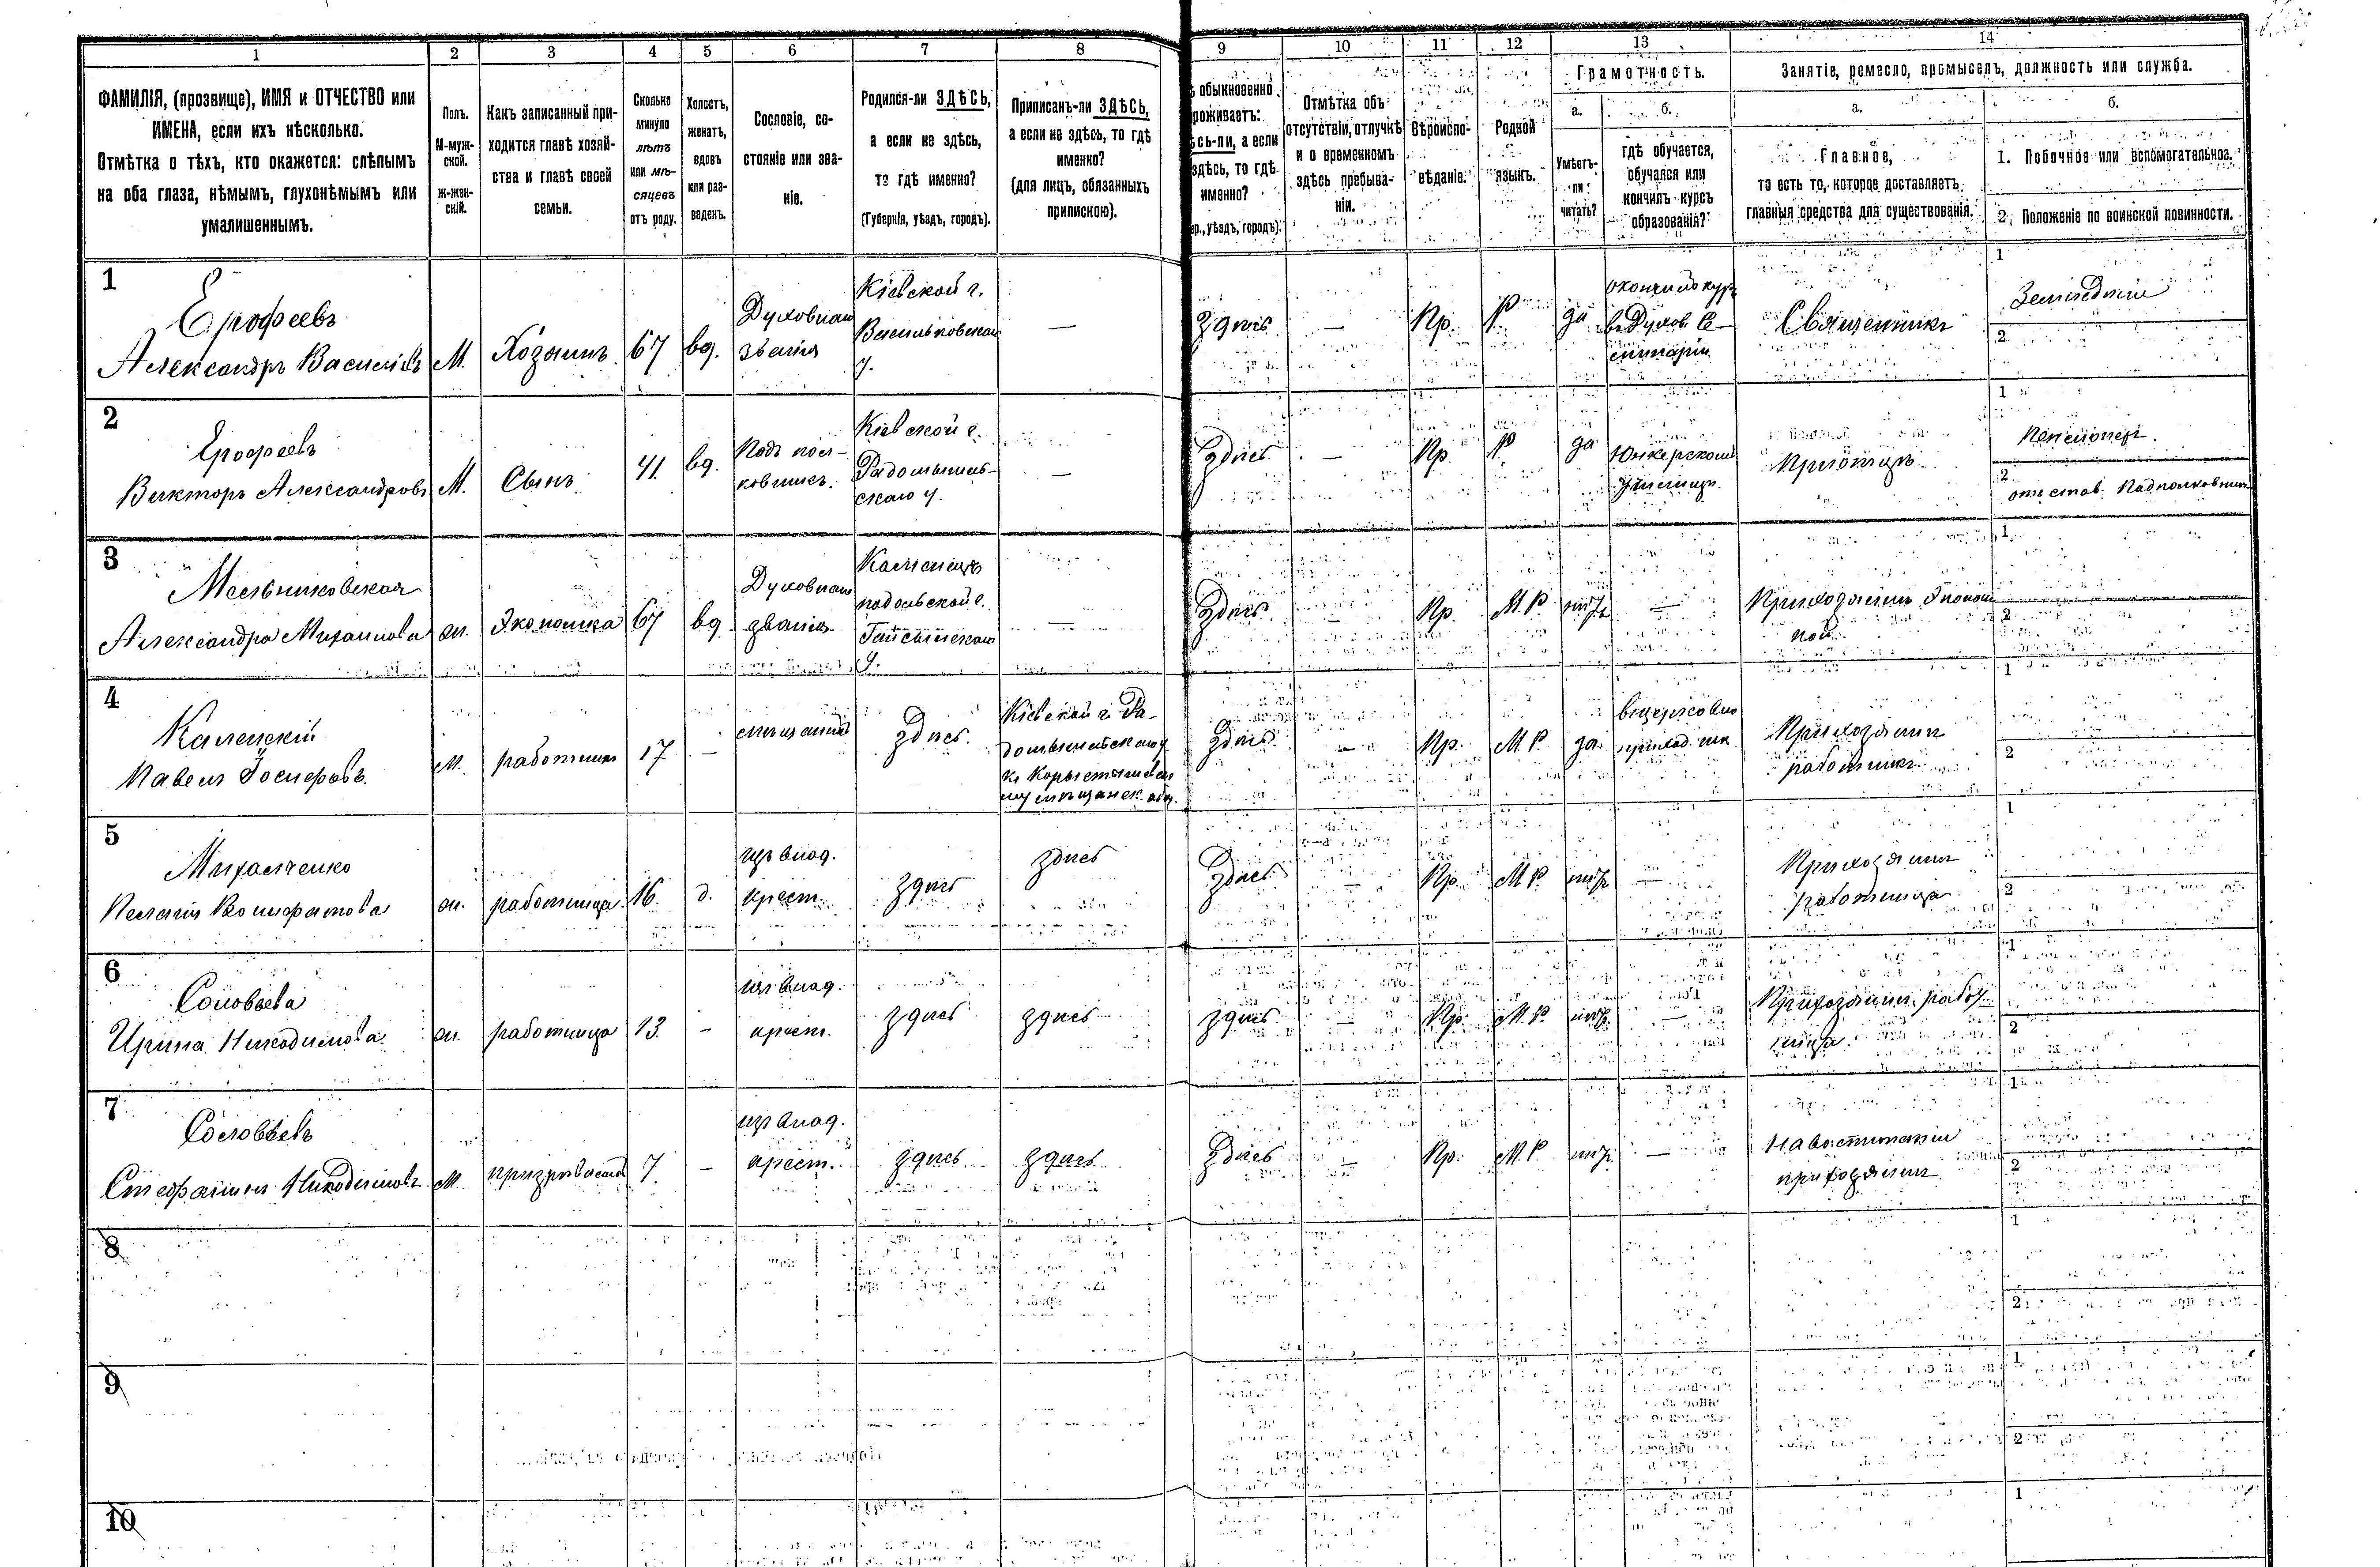 1 2 3 4 5 6 7 8 9 10 11 12 13 14
ФАМИЛІЯ, (прозвище), ИМЯ и ОТЧЕСТВО или
ИМЕНА, если ихъ нѣсколько.
Отмѣтка о тѣхъ, кто окажется: слѣпымъ
на оба глаза, нѣмымъ, глухонѣмымъ или
умалишеннымъ.
Полъ.
М-муж-
ской.
Ж-жен-
скій.
Какъ записанный при-
ходится главѣ хозяй-
ства и главѣ своей
семьи.
Сколько
минуло
лѣтъ
или мѣ-
сяцевъ
отъ роду.
Холостъ,
женатъ,
вдовъ
или раз-
веденъ.
Сословіе, со-
стояніе или зва-
ніе.
Родился-ли ЗДѢСЬ,
а если не здѣсь,
то гдѣ именно?
(Губернія, уѣздъ, городъ).
Приписанъ-ли ЗДѢСЬ,
а если не здѣсь, то гдѣ
именно?
(для лицъ, обязанныхъ
припискою).
обыкновенно
роживаетъ:
сь-ли, а если
здѣсь, то гдѣ
именно?
р., уѣздъ, городъ).
Отмѣтка объ
отсутствіи, отлучкѣ
и о временномъ
здѣсь пребыва-
ніи.
Вѣроиспо-
вѣданіе.
Родной
языкъ.
Грамотность.
а.
Умѣетъ-
ли
читать?
б.
гдѣ обучается,
обучался или
кончилъ курсъ
образованія?
Занятіе, ремесло, промыселъ, должность или служба.
а.
Главное,
то есть то, которое доставляетъ
главныя средства для существованія.
б.
1. Побочное или вспомогательное.
2. Положеніе по воинской повинности.
1
Ерофеевъ
Александръ Василіевъ
М.
Хозяинъ
67
вд.
Духовнаго
званія
Кіевской г.
Васильковскаго
у.
—
Здѣсь
—
Пр.
Р
да
окончилъ кур
въ Духов. Се-
минаріи
Священникъ
1
Земледѣліе
2
2
Ерофеевъ
Викторъ Александровъ
М.
Сынъ
41
вд.
Подпол-
ковникъ.
Кіевской г.
Радомысль-
скаго у.
—
Здѣсь
—
Пр.
Р
да
Юнкерскомъ
Училищѣ
При отцѣ
1
Пенсіонеръ
2
отстав. Подполковникъ
3
Мельниковская
Александра Михаилова
ж.
Экономка
67
вд.
Духовнаго
званія
Каменецъ
подольской г.
Гайсинскаго
у.
—
Здѣсь
Пр.
М. Р.
—
При хозяинѣ Эконом
кой
1
2
4
Каленскій
Павелъ Іосифовъ
М.
работникъ
17
—
мѣщанинъ
Здѣсь.
Кіевской г. Ра-
домысльскаго у
Здѣсь
—
Пр.
М. Р.
да
въ церковно
приход. шк
При хозяинѣ
работникъ
1
2
5
Михальченко
ж.
работница
16.
д.
изъ влад.
крест.
Здѣсь
Здѣсь
Здѣсь
—
Пр.
М. Р.
—
При хозяинѣ
работница
1
2
6
Соловьева
Ирина Никодимова
ж.
работница
13.
—
изъ влад.
крест.
Здѣсь
здѣсь
здѣсь
—
Пр.
М. Р.
—
При хозяинѣ работ
ница
1
2
7
Соловьевъ
Никодимовъ
М.
7.
—
изъ влад.
крест.
здѣсь
здѣсь
Здѣсь
—
Пр.
М. Р.
—
На воспитаніи
при хозяинѣ
1
2
8
1
2
9
1
2
10
1